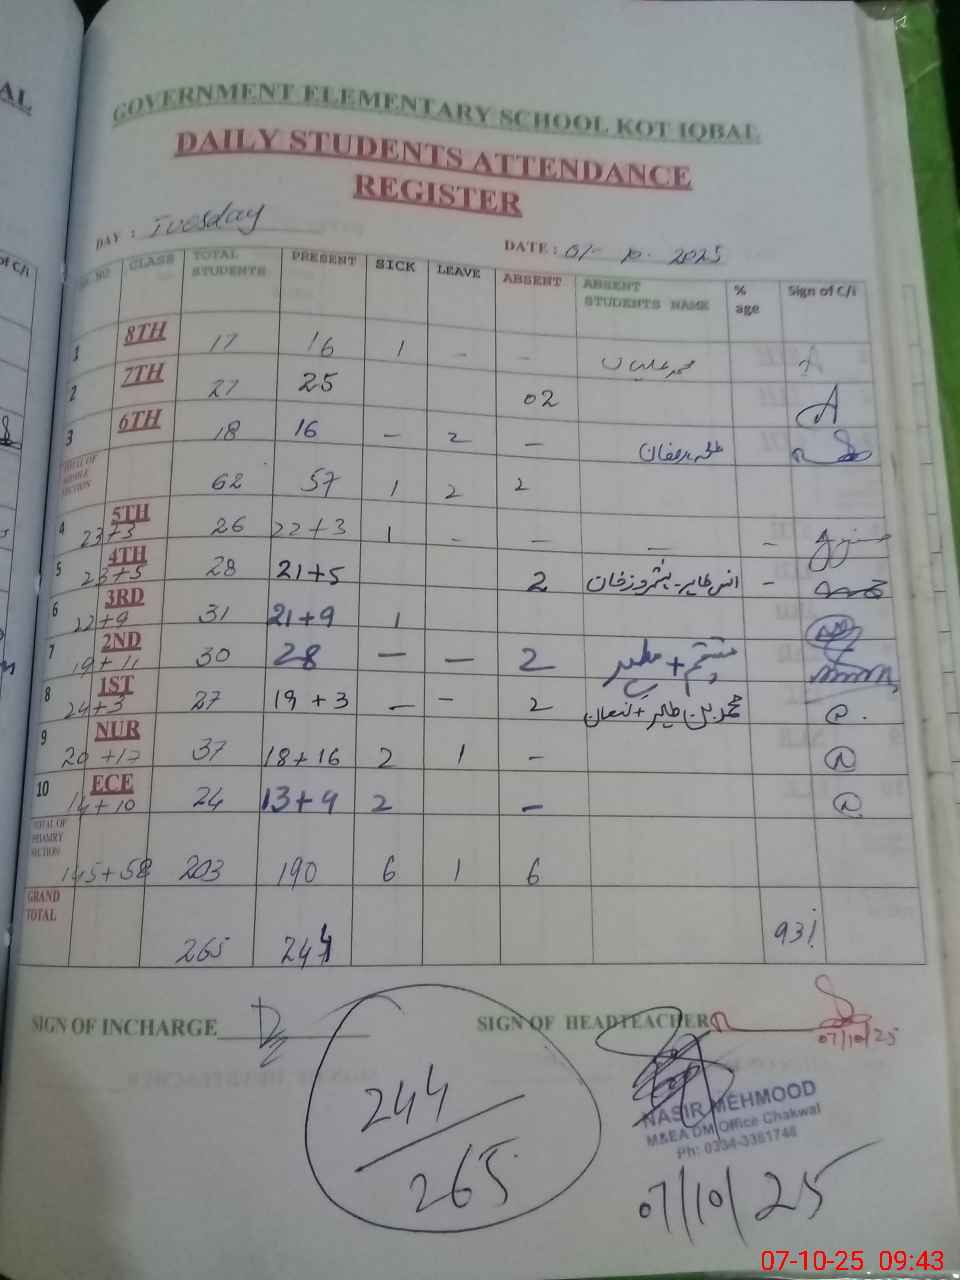 AL
GOVERNMENT ELEMENTARY SCHOOL KOT IQBAL
DAILY STUDENTS ATTENDANCE
REGISTER
DAY : Tuesday
DATE : 07- 10. 2025
of C/i
SR. NO CLASS TOTAL STUDENTS PRESENT SICK LEAVE ABSENT ABSENT STUDENTS NAME % age Sign of C/i
1 8TH 17 16 1 - -
2 7TH 27 25 02
3 6TH 18 16 - 2 -
TOTAL OF MIDDLE SECTION 62 57 1 2 2
4 5TH 23+3 26 22+3 1 - - - -
5 4TH 23+5 28 21+5 2 -
6 3RD 22+9 31 21+9 1
7 2ND 19+11 30 28 - - 2
8 1ST 24+3 27 19+3 - - 2
9 NUR 20+17 37 18+16 2 1 -
10 ECE 14+10 24 13+9 2 -
TOTAL OF PRIAMRY SECTION 145+58 203 190 6 1 6
GRAND TOTAL 265 244 93%
SIGN OF INCHARGE
SIGN OF HEADTEACHER
07/10/25
244
265
NASIR MEHMOOD
M&EA DM Office Chakwal
Ph: 0334-3381748
07/10/25
07-10-25 09:43